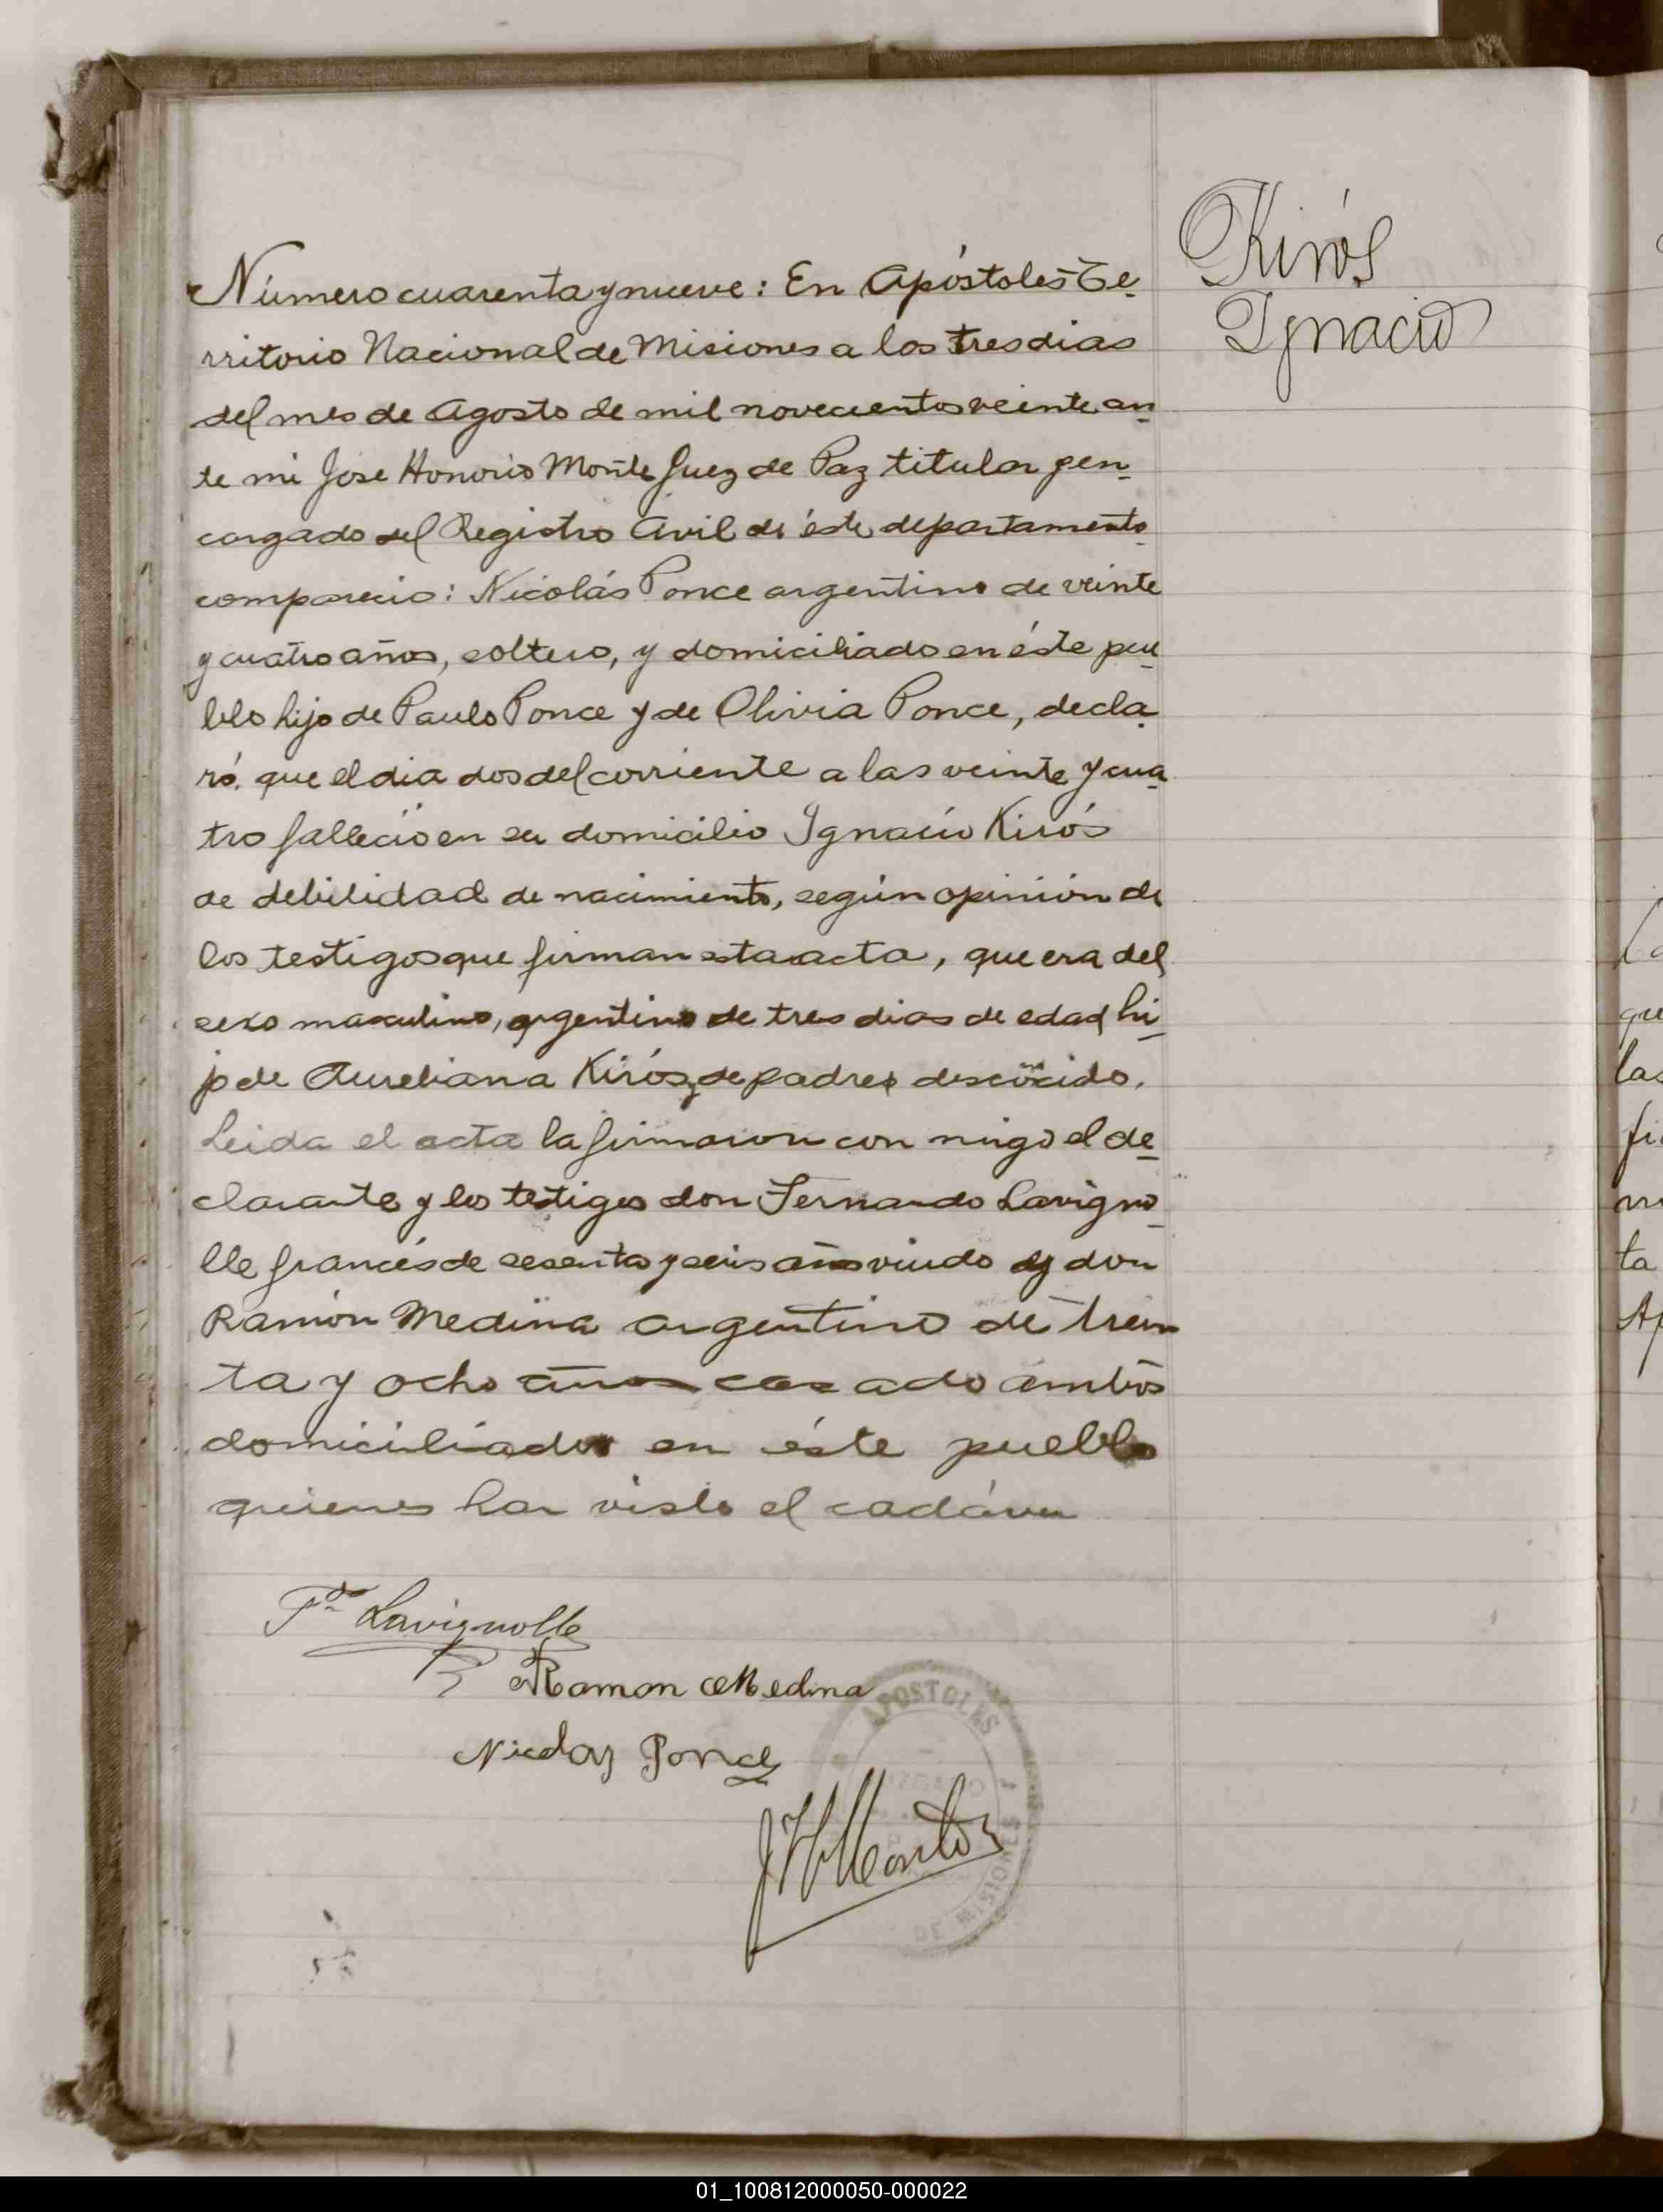 Kirós
Ignacio
Número cuarenta y nueve: En Apóstoles Te-
rritorio Nacional de Misiones a los tres dias
del mes de Agosto de mil novecientos veinte an-
te mi Jose Honorio Monte Juez de Paz titular y en-
cargado del Registro Civil de éste departamento
comparecio: Nicolás Ponce argentino de veinte
y cuatro años, soltero, y domiciliado en éste pue-
blo hijo de Paulo Ponce y de Olivia Ponce, decla-
ró. que el dia dos del corriente a las veinte y cua-
tro falleció en su domicilio Ignacio Kirós
de debilidad de nacimiento, según opinión de
los testigos que firman esta acta, que era del
sexo masculino, argentino de tres dias de edad hi-
jo de Aureliana Kirós y de padres desconocido.
Leida el acta la firmaron con migo el de-
clarante y los testigos don Fernando Lavigno-
lle francés de sesenta y seis años viudo y don
Ramón Medina argentino de trein
ta y ocho años casado ambos
domiciliados en éste pueblo
quienes han visto el cadáver
Fdo Lavignolle
Ramon Medina
Nicolas Ponce
J H Montes
APOSTOLES
JUZGADO
DE MISIONES
01_100812000050-000022